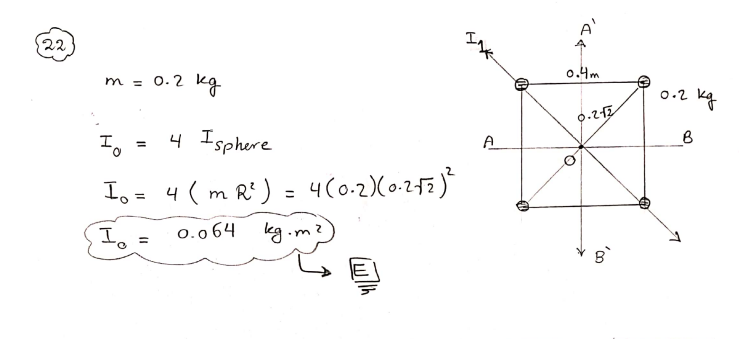 22
m = 0.2 kg
I₀ = 4 Isphere
I₀ = 4 ( m R² ) = 4(0.2)(0.2√2)²
I₀ = 0.064 kg.m²
E
I₁
A`
0.4m
0.2 kg
0.2√2
A
B
O
B`